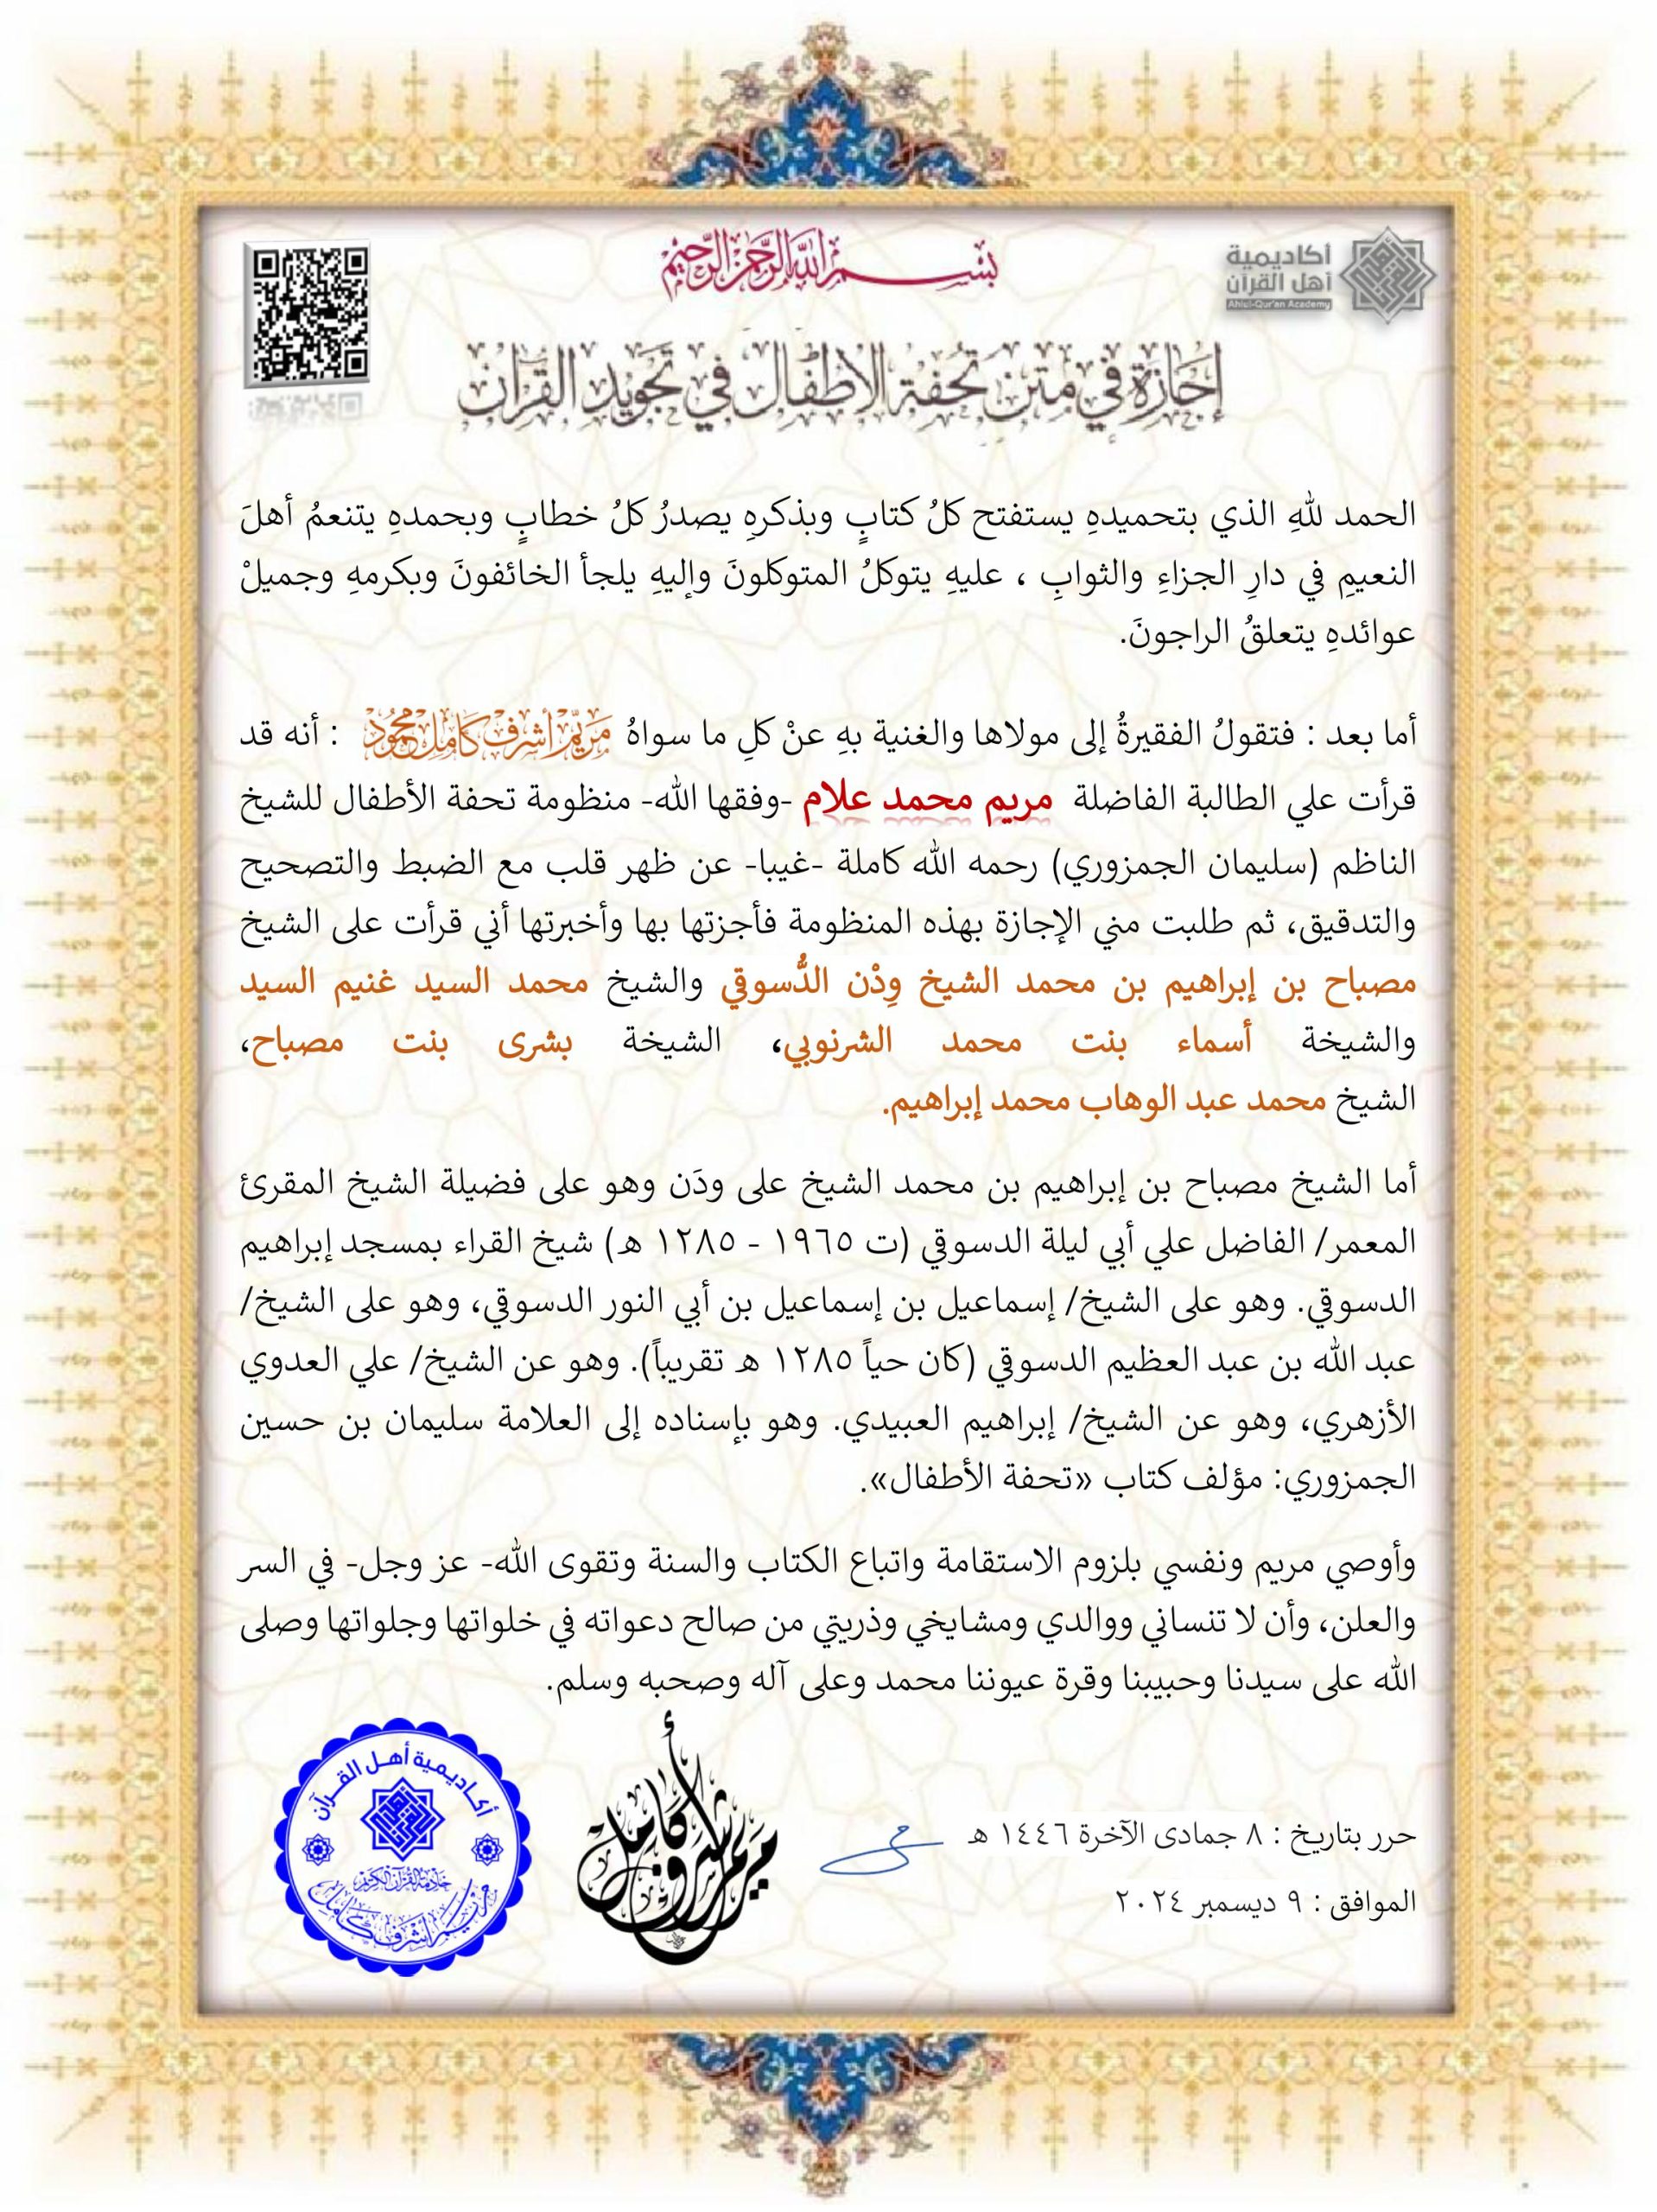 أكاديمية
أهل القرآن
Ahlul-Qur'an Academy
بسم الله الرحمن الرحيم
إجازة في متن تحفة الأطفال في تجويد القرآن
الحمد للهِ الذي بتحميدهِ يستفتح كلُ كتابٍ وبذكرهِ يصدرُ كلُ خطابٍ وبحمدهِ يتنعمُ أهلَ
النعيمِ في دارِ الجزاءِ والثوابِ ، عليهِ يتوكلُ المتوكلونَ وإليهِ يلجأ الخائفونَ وبكرمهِ وجميلْ
عوائدهِ يتعلقُ الراجونَ.
أما بعد : فتقولُ الفقيرةُ إلى مولاها والغنية بهِ عنْ كلِ ما سواهُ مريم أشرف كامل محمود : أنه قد
قرأت علي الطالبة الفاضلة مريم محمد علام -وفقها الله- منظومة تحفة الأطفال للشيخ
الناظم (سليمان الجمزوري) رحمه الله كاملة -غيبا- عن ظهر قلب مع الضبط والتصحيح
والتدقيق، ثم طلبت مني الإجازة بهذه المنظومة فأجزتها بها وأخبرتها أني قرأت على الشيخ
مصباح بن إبراهيم بن محمد الشيخ وِدْن الدُّسوقي والشيخ محمد السيد غنيم السيد
والشيخة أسماء بنت محمد الشرنوبي، الشيخة بشرى بنت مصباح،
الشيخ محمد عبد الوهاب محمد إبراهيم.
أما الشيخ مصباح بن إبراهيم بن محمد الشيخ على ودَن وهو على فضيلة الشيخ المقرئ
المعمر/ الفاضل علي أبي ليلة الدسوقي (ت ١٩٦٥ - ١٢٨٥ هـ) شيخ القراء بمسجد إبراهيم
الدسوقي. وهو على الشيخ/ إسماعيل بن إسماعيل بن أبي النور الدسوقي، وهو على الشيخ/
عبد الله بن عبد العظيم الدسوقي (كان حياً ١٢٨٥ هـ تقريباً). وهو عن الشيخ/ علي العدوي
الأزهري، وهو عن الشيخ/ إبراهيم العبيدي. وهو بإسناده إلى العلامة سليمان بن حسين
الجمزوري: مؤلف كتاب «تحفة الأطفال».
وأوصي مريم ونفسي بلزوم الاستقامة واتباع الكتاب والسنة وتقوى الله- عز وجل- في السر
والعلن، وأن لا تنساني ووالدي ومشايخي وذريتي من صالح دعواته في خلواتها وجلواتها وصلى
الله على سيدنا وحبيبنا وقرة عيوننا محمد وعلى آله وصحبه وسلم.
حرر بتاريخ : ٨ جمادى الآخرة ١٤٤٦ هـ
الموافق : ٩ ديسمبر ٢٠٢٤
مريم أشرف كامل
أكاديمية أهل القرآن
خادمة القرآن الكريم
مريم أشرف كامل